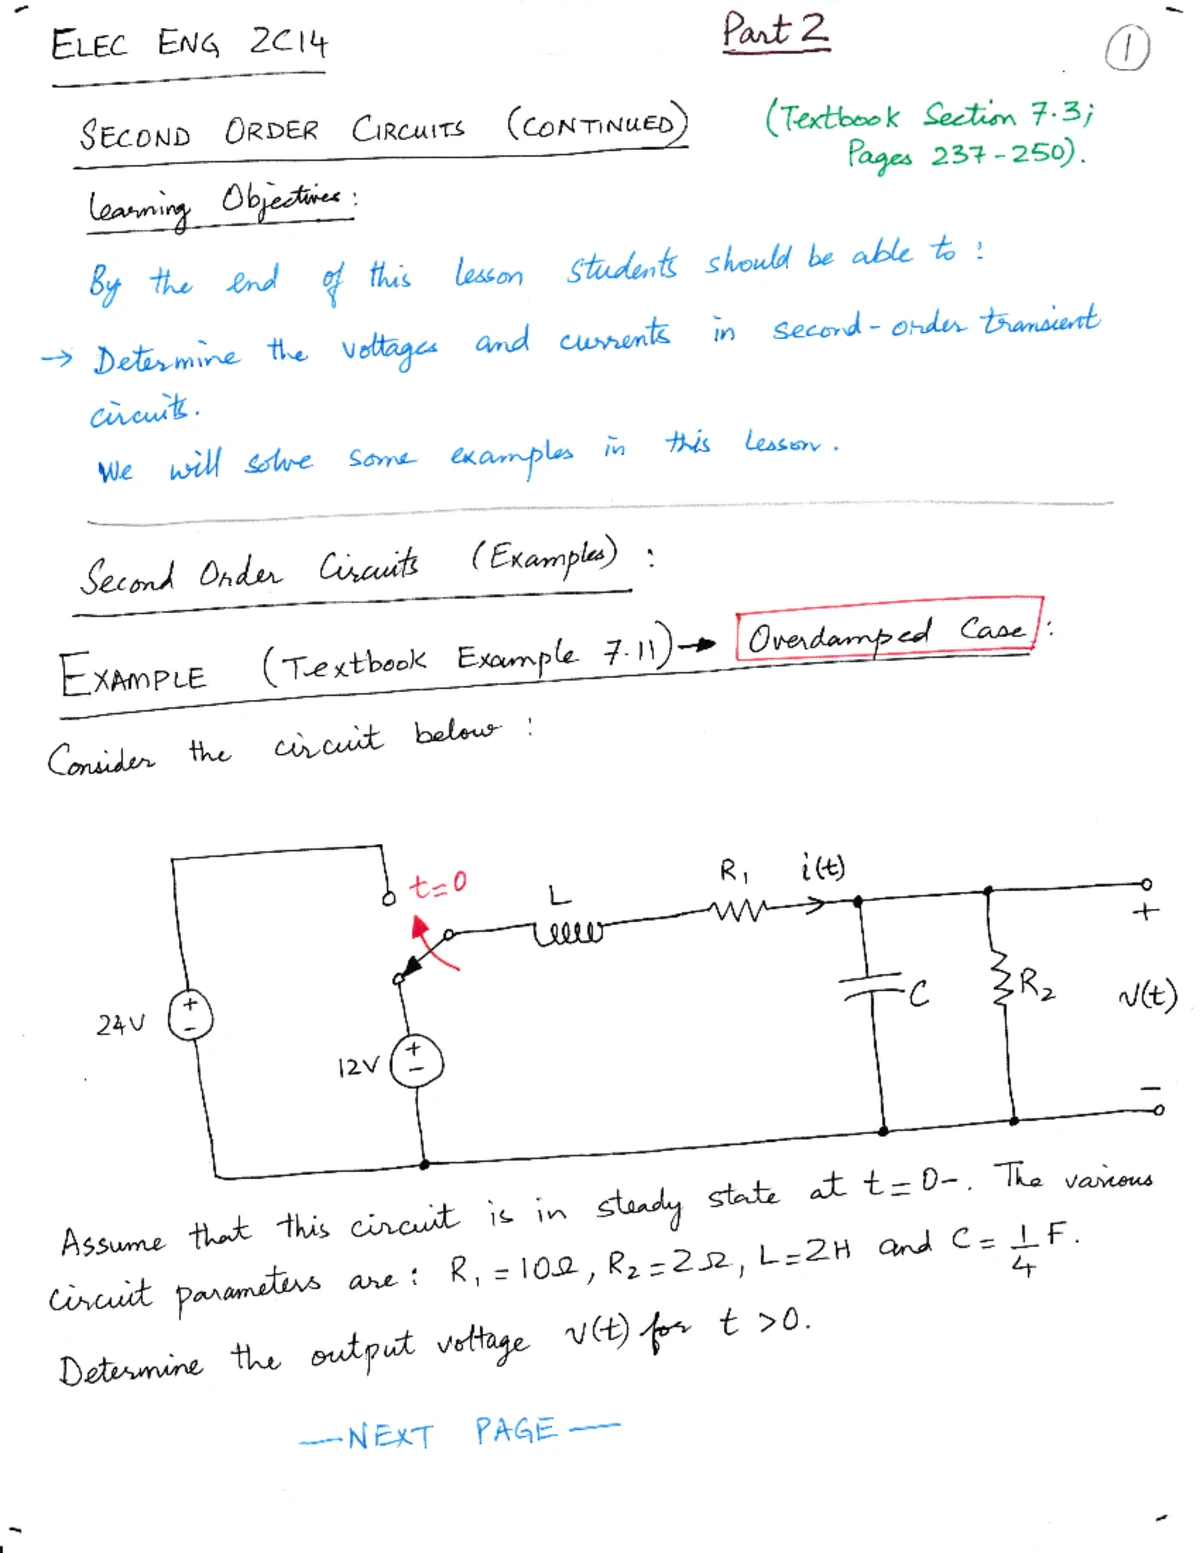 ELEC ENG 2CI4
Part 2
1
SECOND ORDER CIRCUITS (CONTINUED)
(Textbook Section 7.3;
Pages 237-250).
Learning Objectives:
By the end of this lesson students should be able to :
→ Determine the voltages and currents in second-order transient
circuits.
We will solve some examples in this lesson.
Second Order Circuits (Examples) :
EXAMPLE (Textbook Example 7.11) → Overdamped Case :
Consider the circuit below :
t=0
L
R₁
i(t)
+
24V
+
-
12V
+
-
C
R₂
v(t)
-
Assume that this circuit is in steady state at t=0-. The various
circuit parameters are : R₁ = 10Ω, R₂ = 2Ω, L=2H and C = 1/4 F.
Determine the output voltage v(t) for t >0.
— NEXT PAGE —